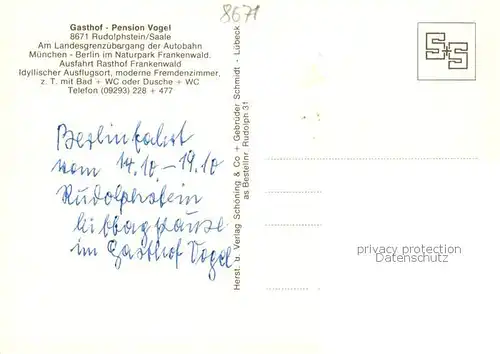 Gasthof - Pension Vogel
8671 Rudolphstein/Saale
Am Landesgrenzübergang der Autobahn
München - Berlin im Naturpark Frankenwald.
Ausfahrt Rasthof Frankenwald
Idyllischer Ausflugsort, moderne Fremdenzimmer,
z. T. mit Bad + WC oder Dusche + WC
Telefon (09293) 228 + 477
8671
Herst. u. Verlag Schöning & Co + Gebrüder Schmidt - Lübeck
as Bestellnr. Rudolph 31
S+S
Berlinfahrt
vom 14.10.-19.10
Rudolphstein
Mittagspause
im Gasthof Vogel
privacy protection
Datenschutz